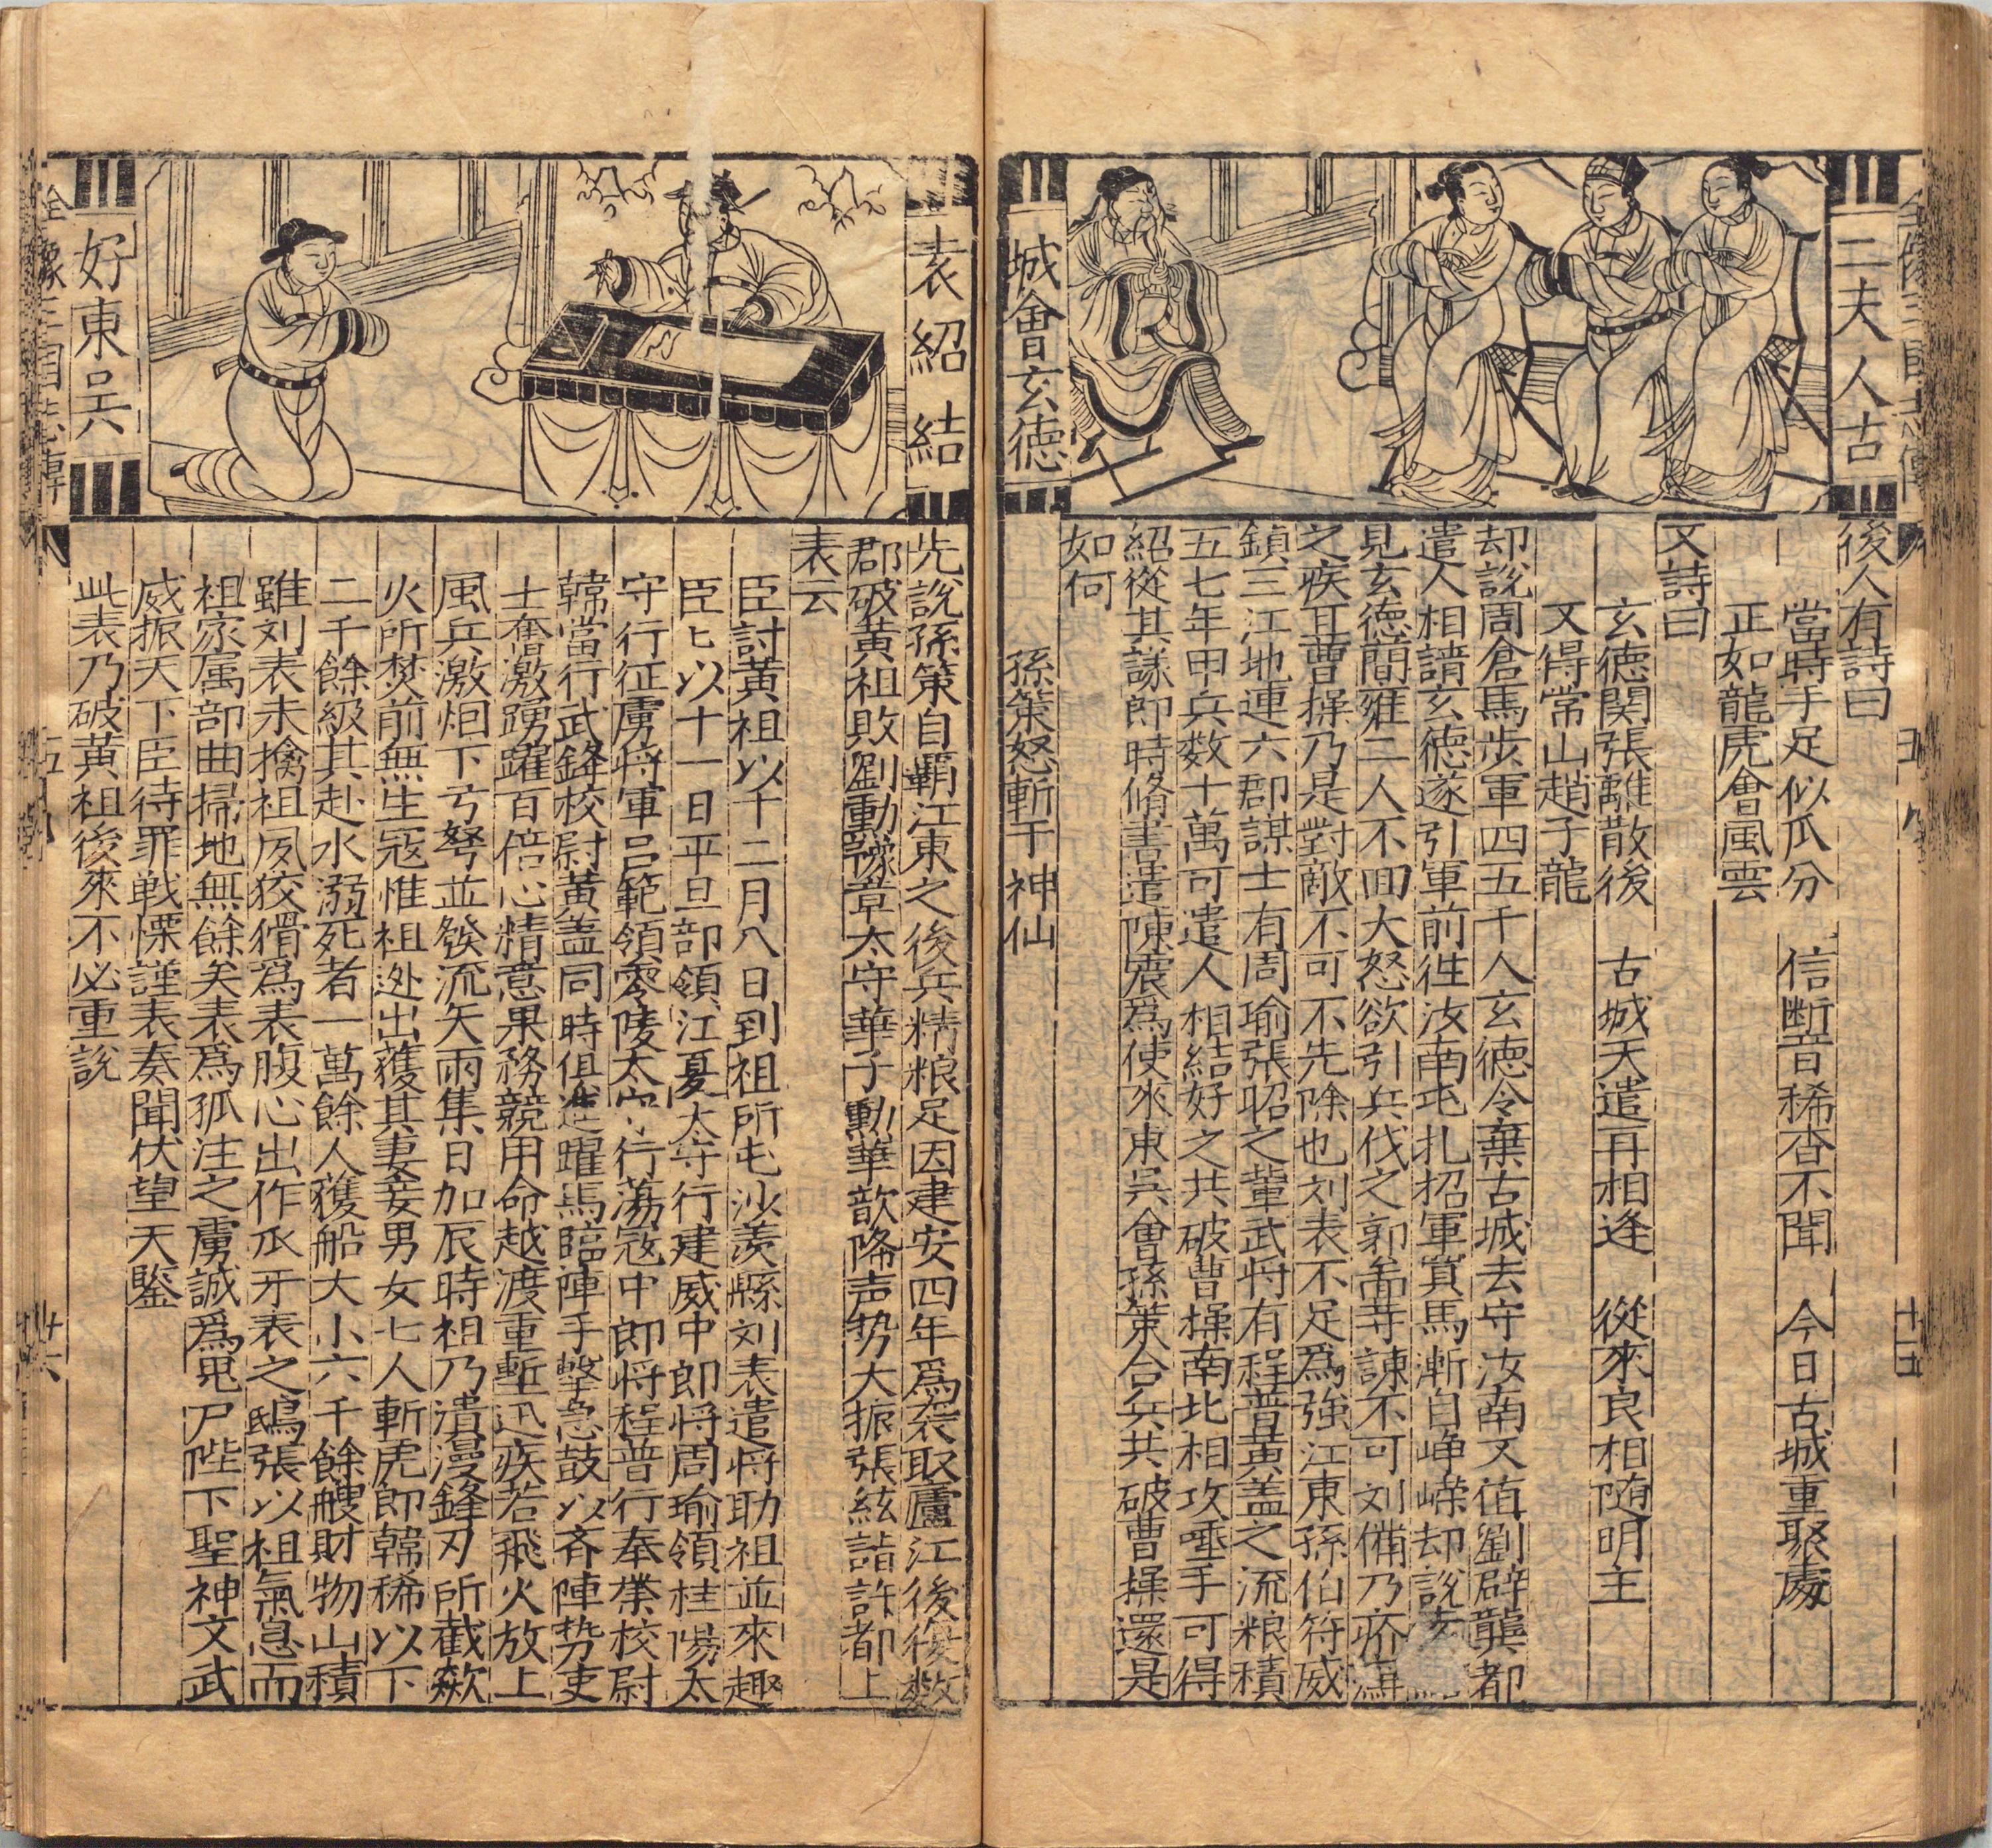 二夫人古
城會玄德
後人有詩曰
當時手足似瓜分　信斷音稀杳不聞　今日古城重聚處
正如龍虎會風雲
又詩曰
玄德関張離散後　古城天遣再相逢　從來良相随明主
又得常山趙子龍
却說周倉馬步軍四五千人玄德令棄古城去守汝南又值劉辟龔都
遣人相請玄德遂引軍前徃汝南屯扎招軍買馬漸自崢嶸却說
見玄德簡雍二人不回大怒欲引兵伐之郭啚等諫不可刘備乃疥
之疾耳曹操乃是對敵不可不先除也刘表不足爲強江東孫伯符威
鎮三江地連六郡謀士有周瑜張昭之輩武将有程普黄盖之流粮積
五七年甲兵数十萬可遣人相結好之共破曹操南北相攻唾手可得
紹從其謀即時脩書遣陳震爲使來東吳會孫策合兵共破曹操還是
如何
孫策怒斬于神仙
五八
十五
袁紹結
好東吳
先說孫策自覇江東之後兵精粮足因建安四年爲袭取廬江後復数
郡破黄祖敗劉勳豫章太守華子勳華歆降声势大振張紘詣許都上
表云
臣討黄祖以十二月八日到祖所屯沙羡縣刘表遣将助祖並來趣
臣匕以十一日平旦部領江夏太守行建威中郎将周瑜領桂陽太
守行征虜将軍吕範領零陵太守行蕩寇中郎将程普行奉業校尉
韓當行武鋒校尉黄盖同時俱進躍馬臨陣手擊急鼓以斉陣势吏
士奮激踴躍百倍心精意果務競用命越渡重塹迅疾若飛火放上
風兵激烟下弓弩並發流矢雨集日加辰時祖乃潰漫鋒刃所截焱
火所焚前無生寇惟祖迯出獲其妻妾男女七人斬虎郎韓稀以下
二千餘級其赴水溺死者一萬餘人獲船大小六千餘艘財物山積
雖刘表未擒祖夙狡猾爲表腹心出作爪牙表之鴟張以祖氣息而
祖家属部曲掃地無餘矣表爲孤注之虜誠爲鬼尸陛下聖神文武
威振天下臣待罪戦慄謹表奏聞伏望天鑒
此表乃破黄祖後來不必重說
全像三國志傳
五
廿六